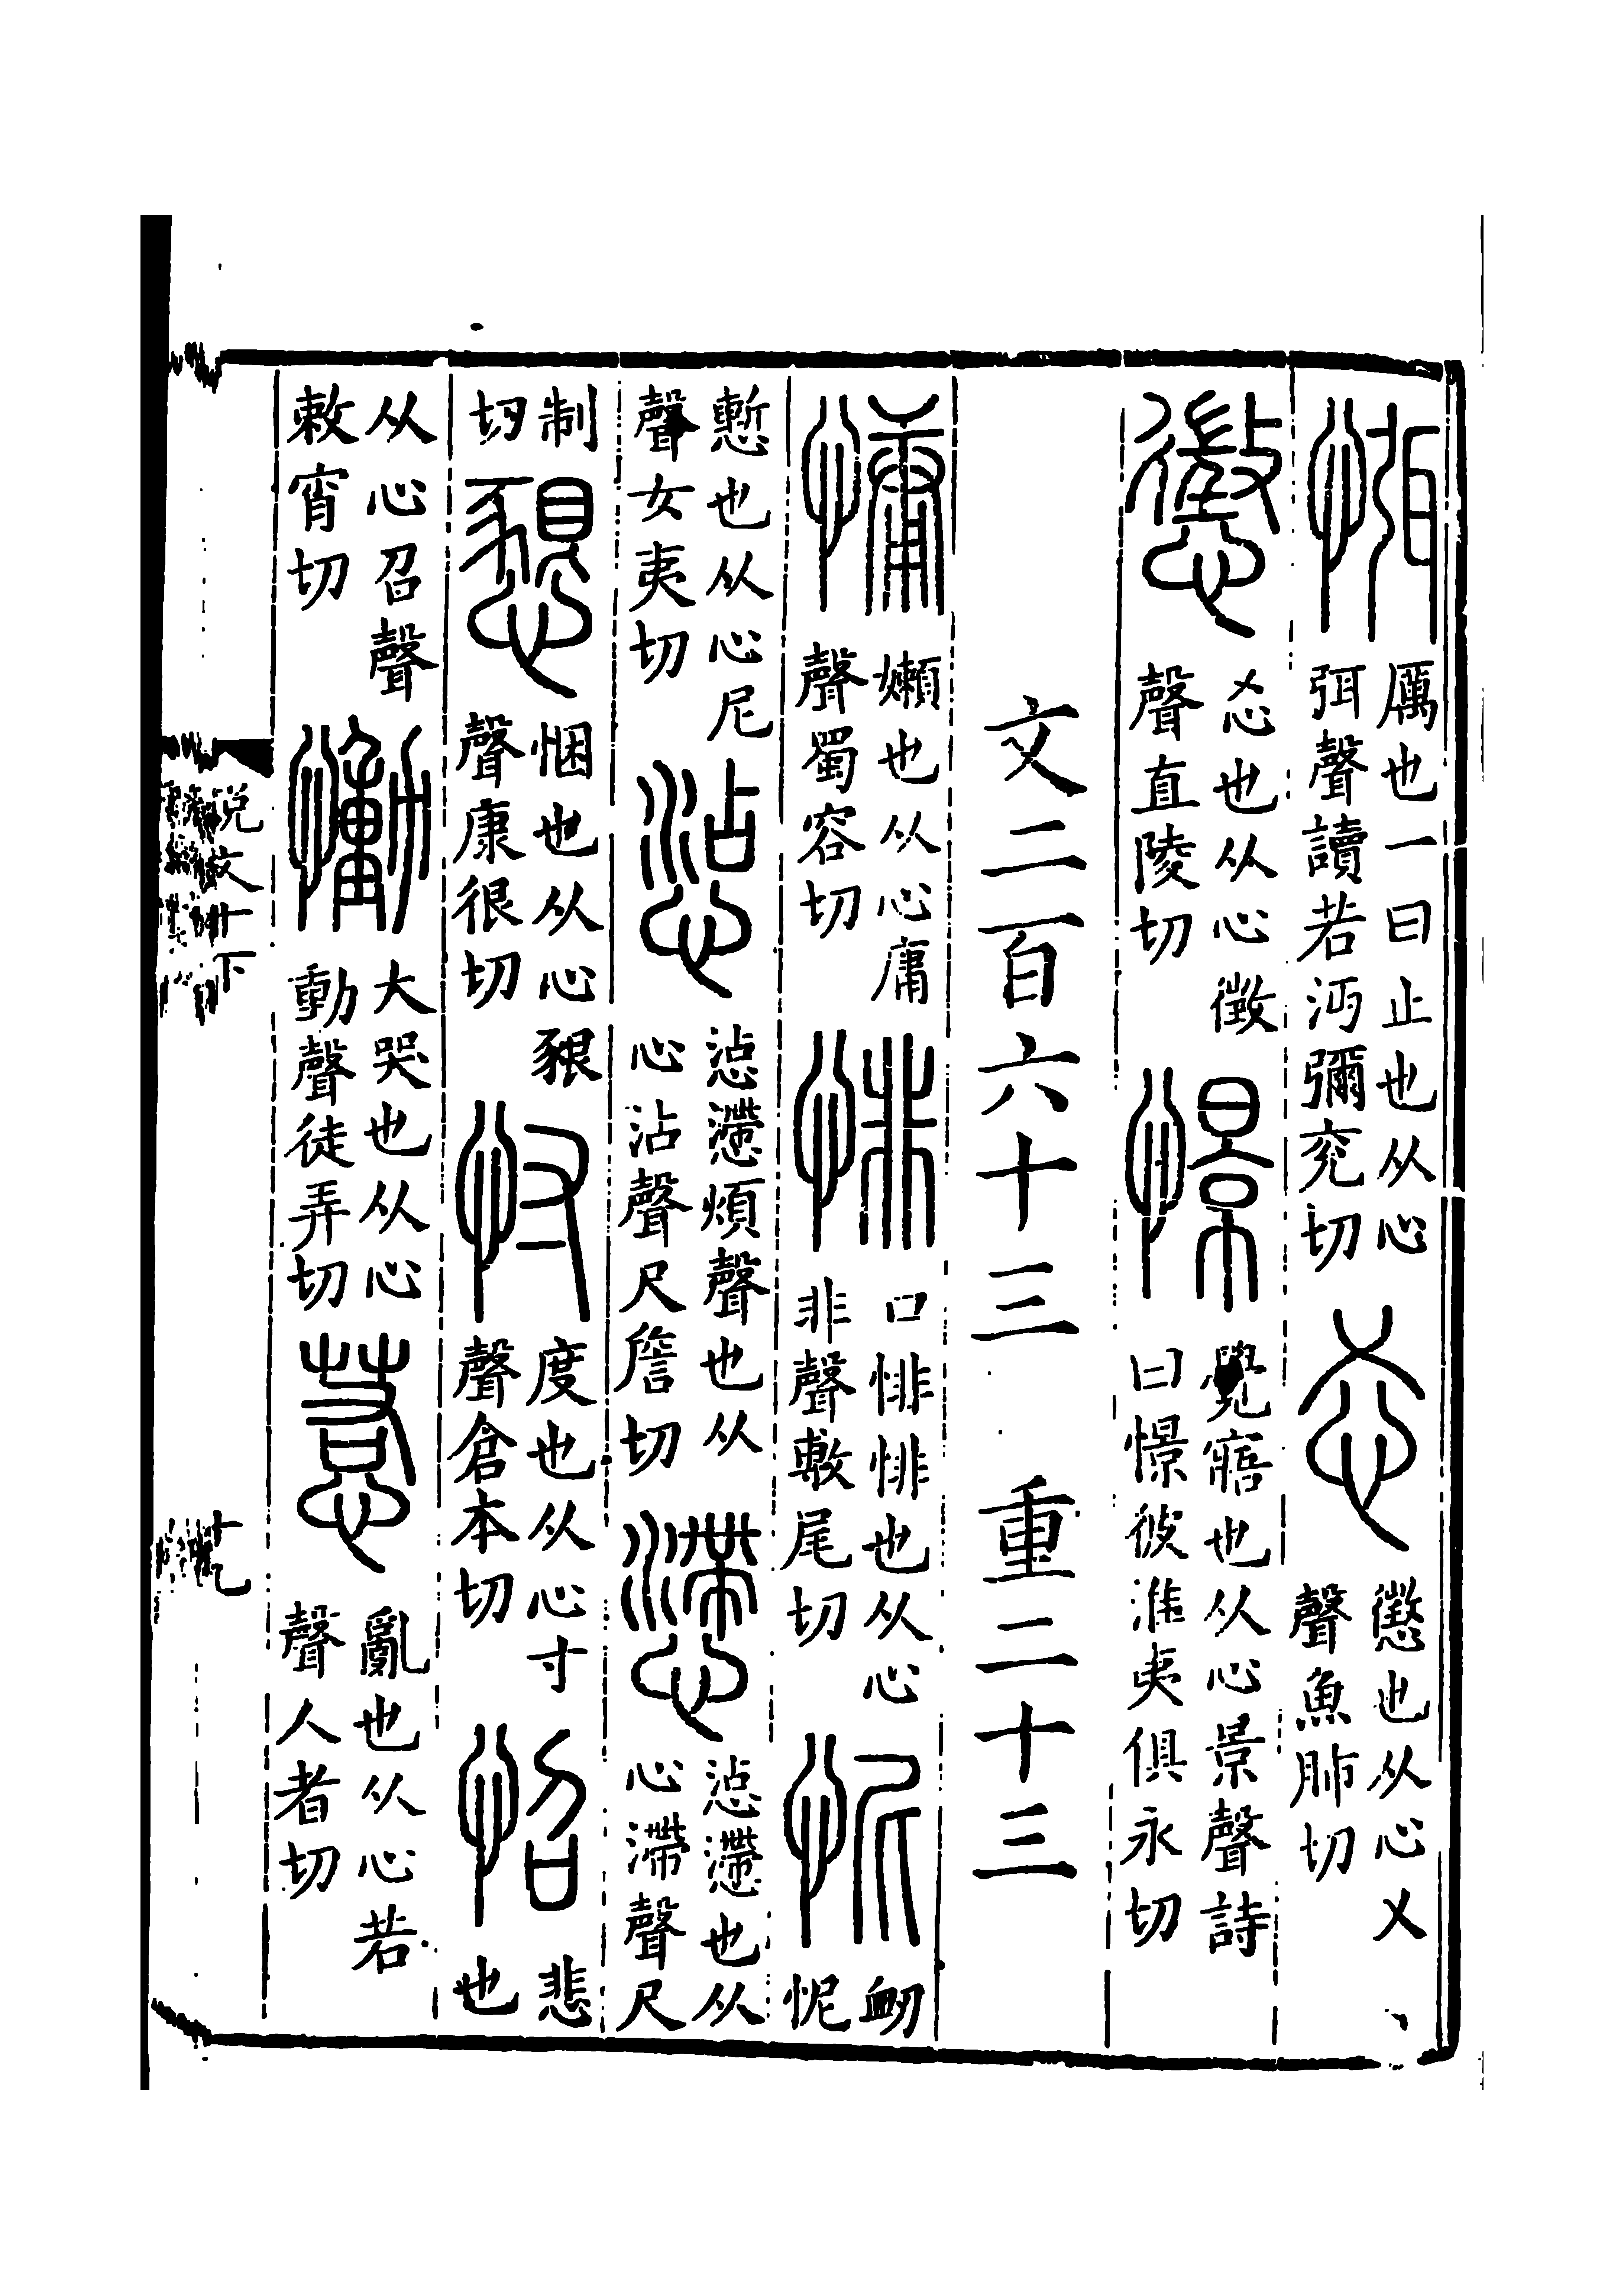 𢘅厲也一曰止也从心弭聲讀若沔彌兖切㣻懲也从心乂聲魚肺切
懲㣻也从心徵聲直陵切憬覺寤也从心景聲詩曰憬彼淮夷俱永切
文二百六十三　重二十三
慵嬾也从心庸聲蜀容切悱口悱悱也从心非聲敷尾切忯𢗊怩
慙也从心尼聲女夷切惉惉懘煩聲也从心沾聲尺詹切懘惉懘也从心滯聲尺
制切懇悃也从心豤聲康很切忖度也从心寸聲倉本切怊悲也
从心召聲敕宵切慟大哭也从心動聲徒弄切惹亂也从心若聲人者切
說文十下